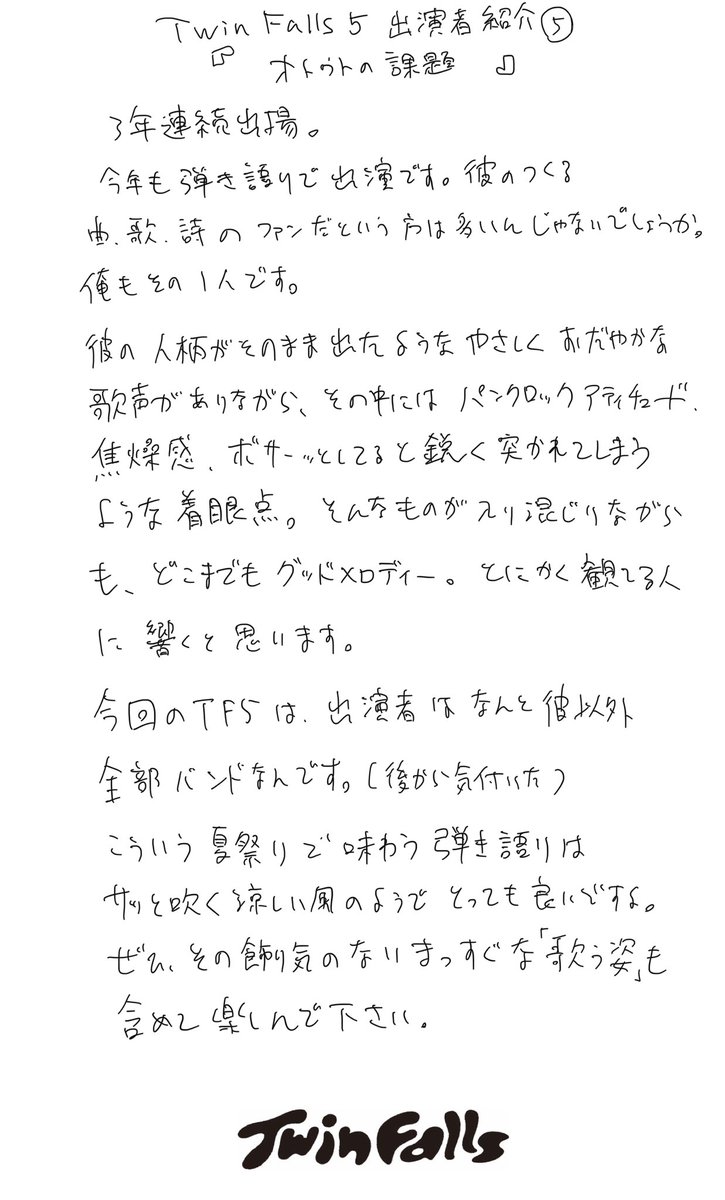 Twin Falls 5 出演者紹介⑤
『オトウトの課題』
3年連続出場。
今年も弾き語りで出演です。彼のつくる
曲、歌、詩のファンだという方は多いんじゃないでしょうか。
俺もその1人です。
彼の人柄がそのまま出たようなやさしくおだやかな
歌声がありながら、その中にはパンクロックアティチュード、
焦燥感、ボサーッとしてると鋭く突かれてしまう
ような着眼点。そんなものが入り混じりながら
も、どこまでもグッドメロディー。とにかく観てる人
に響くと思います。
今回のTF5は、出演者はなんと彼以外
全部バンドなんです。(後から気付いた)
こういう夏祭りで味わう弾き語りは
サッと吹く涼しい風のようでとっても良いですよ。
ぜひ、その飾り気のないまっすぐな「歌う姿」も
含めて楽しんで下さい。
Twin Falls